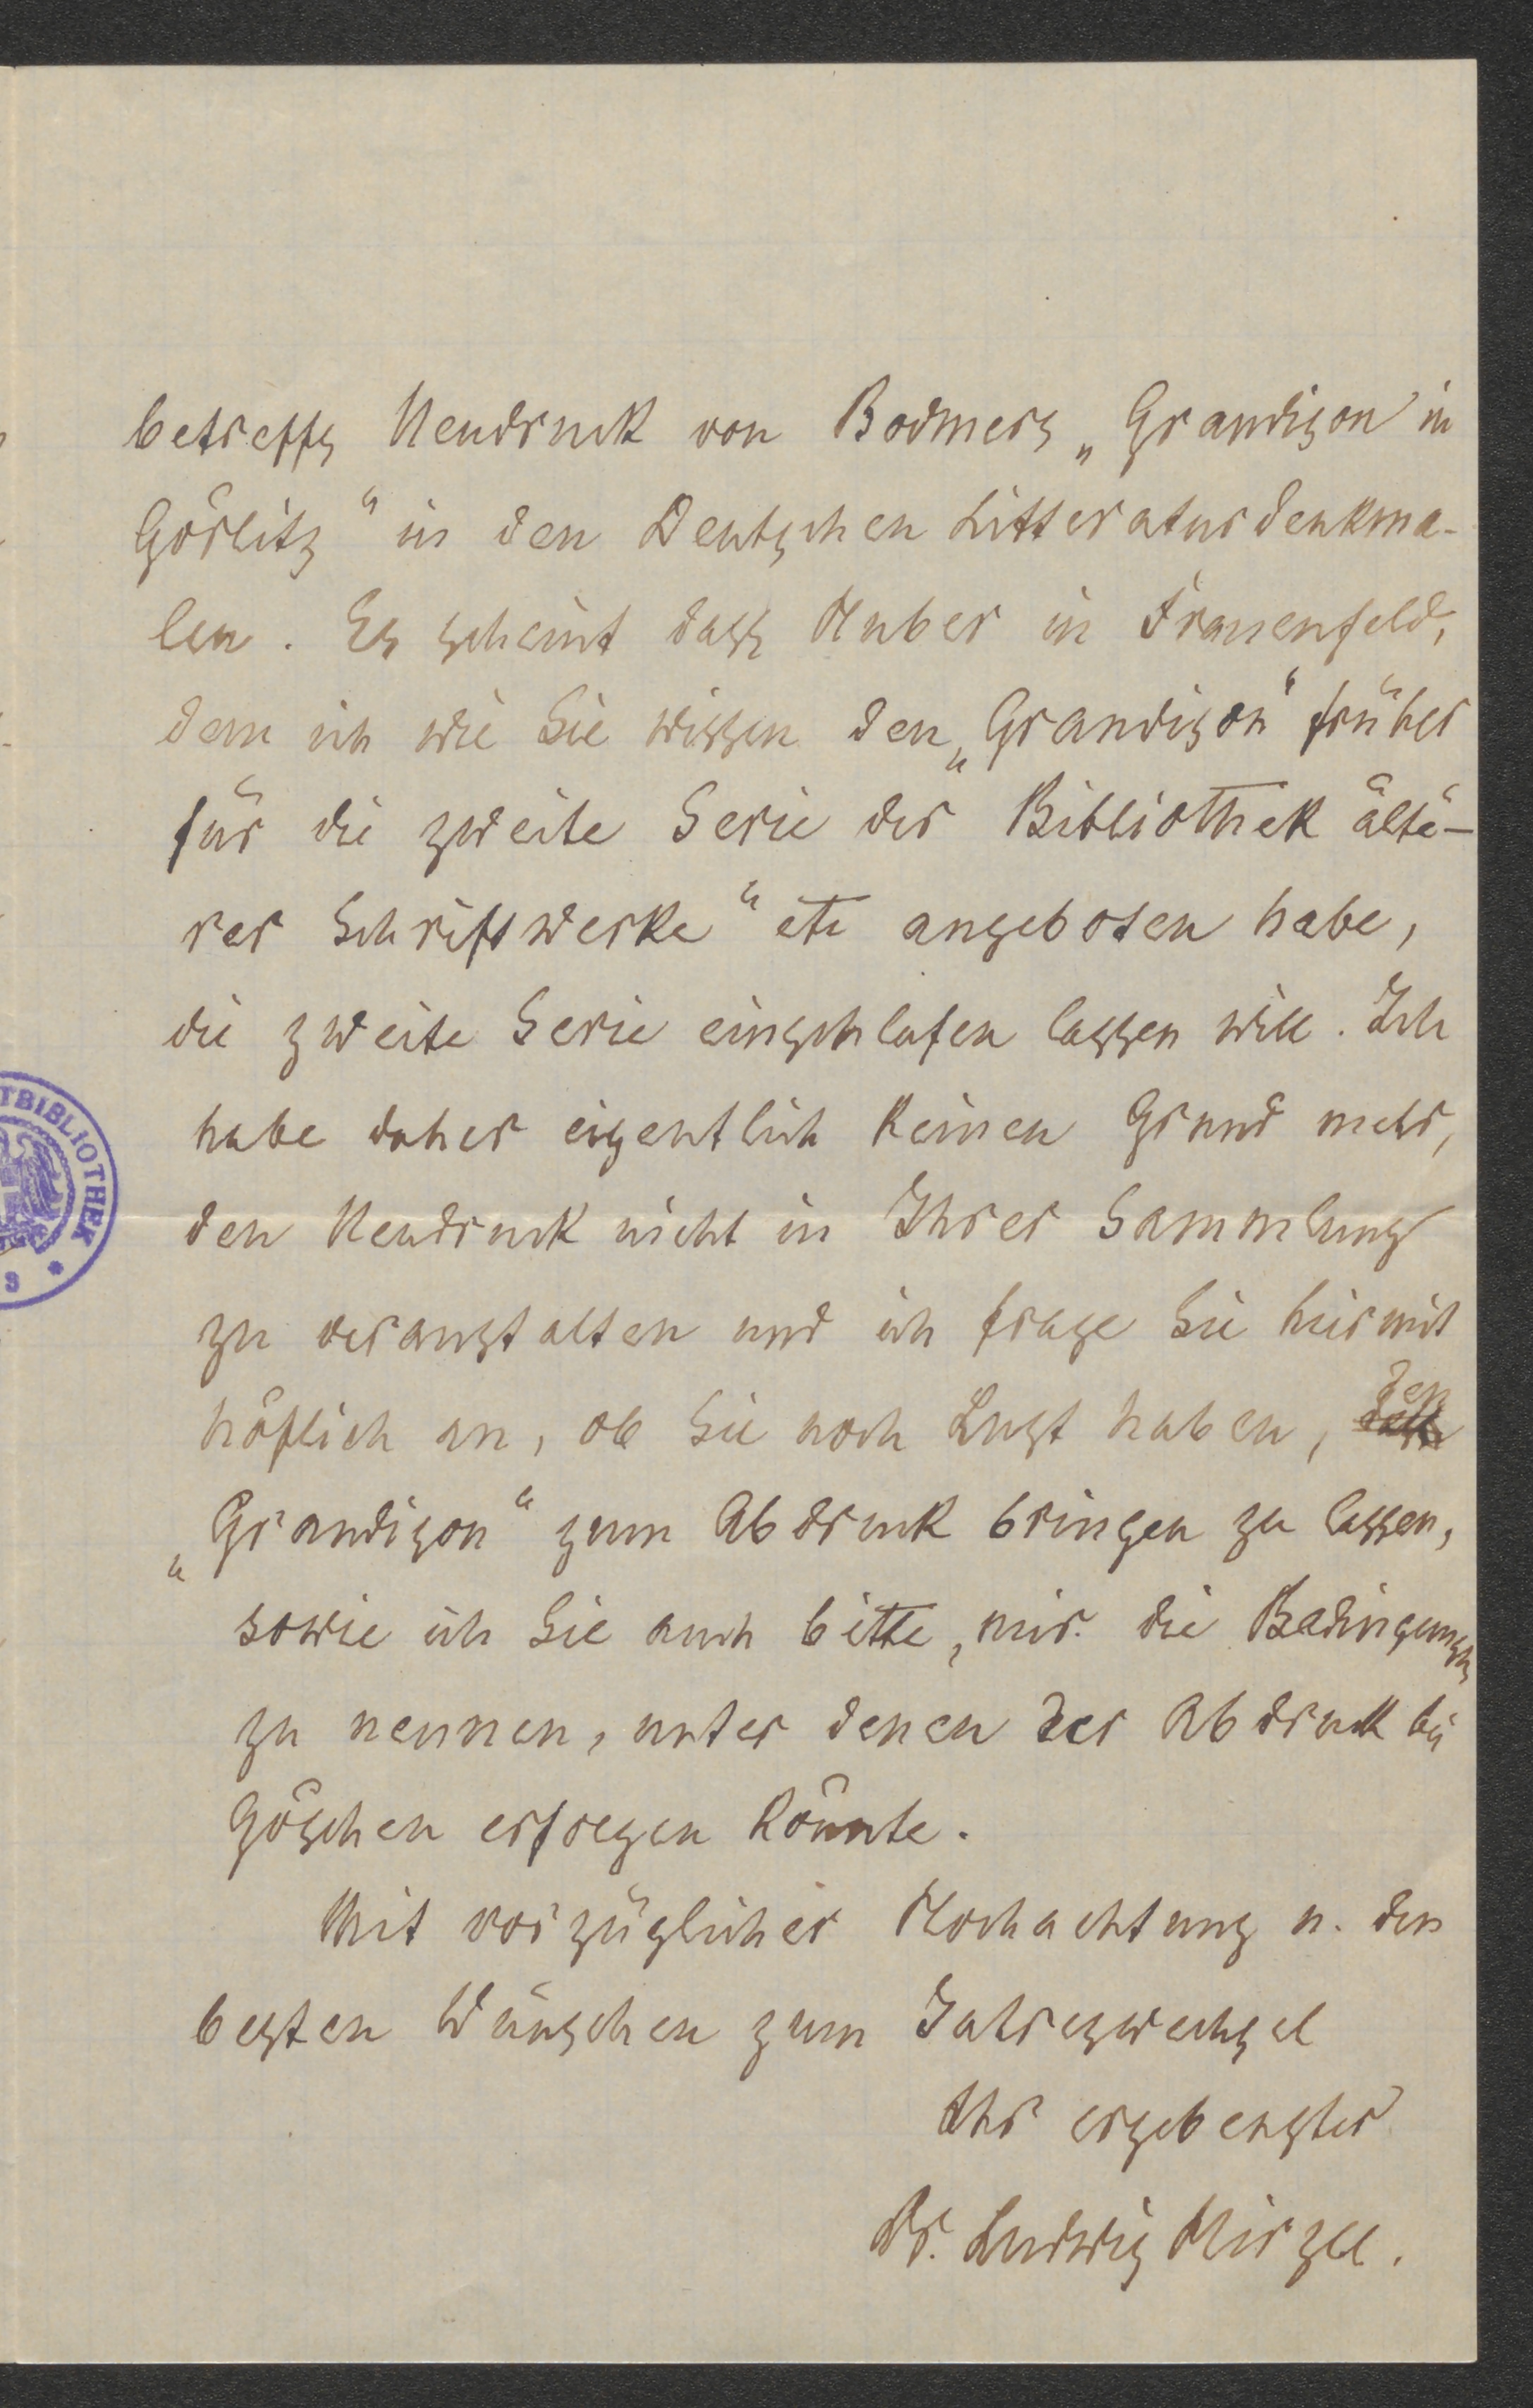 betreffs Neudruck von Bodmers „Grandison in
Görlitz“ in den Deutschen Litteraturdenkma-
len. Es scheint dass Huber in Frauenfeld,
dem ich wie Sie wissen den „Grandison“ früher
für die zweite Serie der Bibliothek älte-
rer Schriftwerke“ etc angeboten habe,
die zweite Serie einschlafen lassen will. Ich
habe daher eigentlich keinen Grund mehr,
den Neudruck nicht in Ihrer Sammlung
TBIBLIOTHEK
zu veranstalten und ich frage Sie hiermit
höflich an, ob Sie noch Lust haben, den
„Grandison“ zum Abdruck bringen zu lassen,
sowie ich Sie auch bitte, mir die Bedingungen
zu nennen, unter denen der Abdruck bei
Göschen erfolgen könnte.
Mit vorzüglicher Hochachtung u. den
besten Wünschen zum Jahreswechsel
Ihr ergebenster
Dr. Ludwig Hirzel.